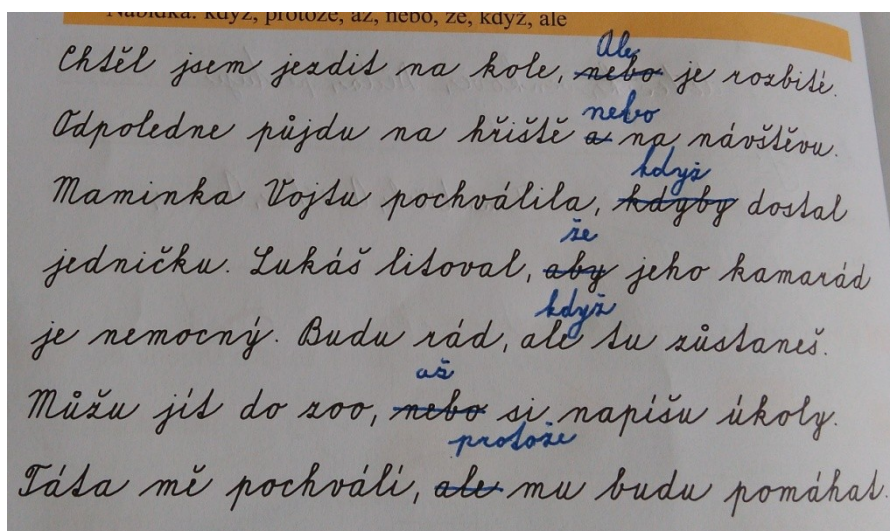 Nabídka: když, protože, až, nebo, že, když, ale
Ale
Chtěl jsem jezdit na kole, nebo je rozbité.
nebo
Odpoledne půjdu na hřiště a na návštěvu.
když
Maminka Vojtu pochválila, kdyby dostal
že
jedničku. Lukáš litoval, aby jeho kamarád
když
je nemocný. Budu rád, ale tu zůstaneš.
až
Můžu jít do zoo, nebo si napíšu úkoly.
protože
Táta mě pochválí, ale mu budu pomáhat.